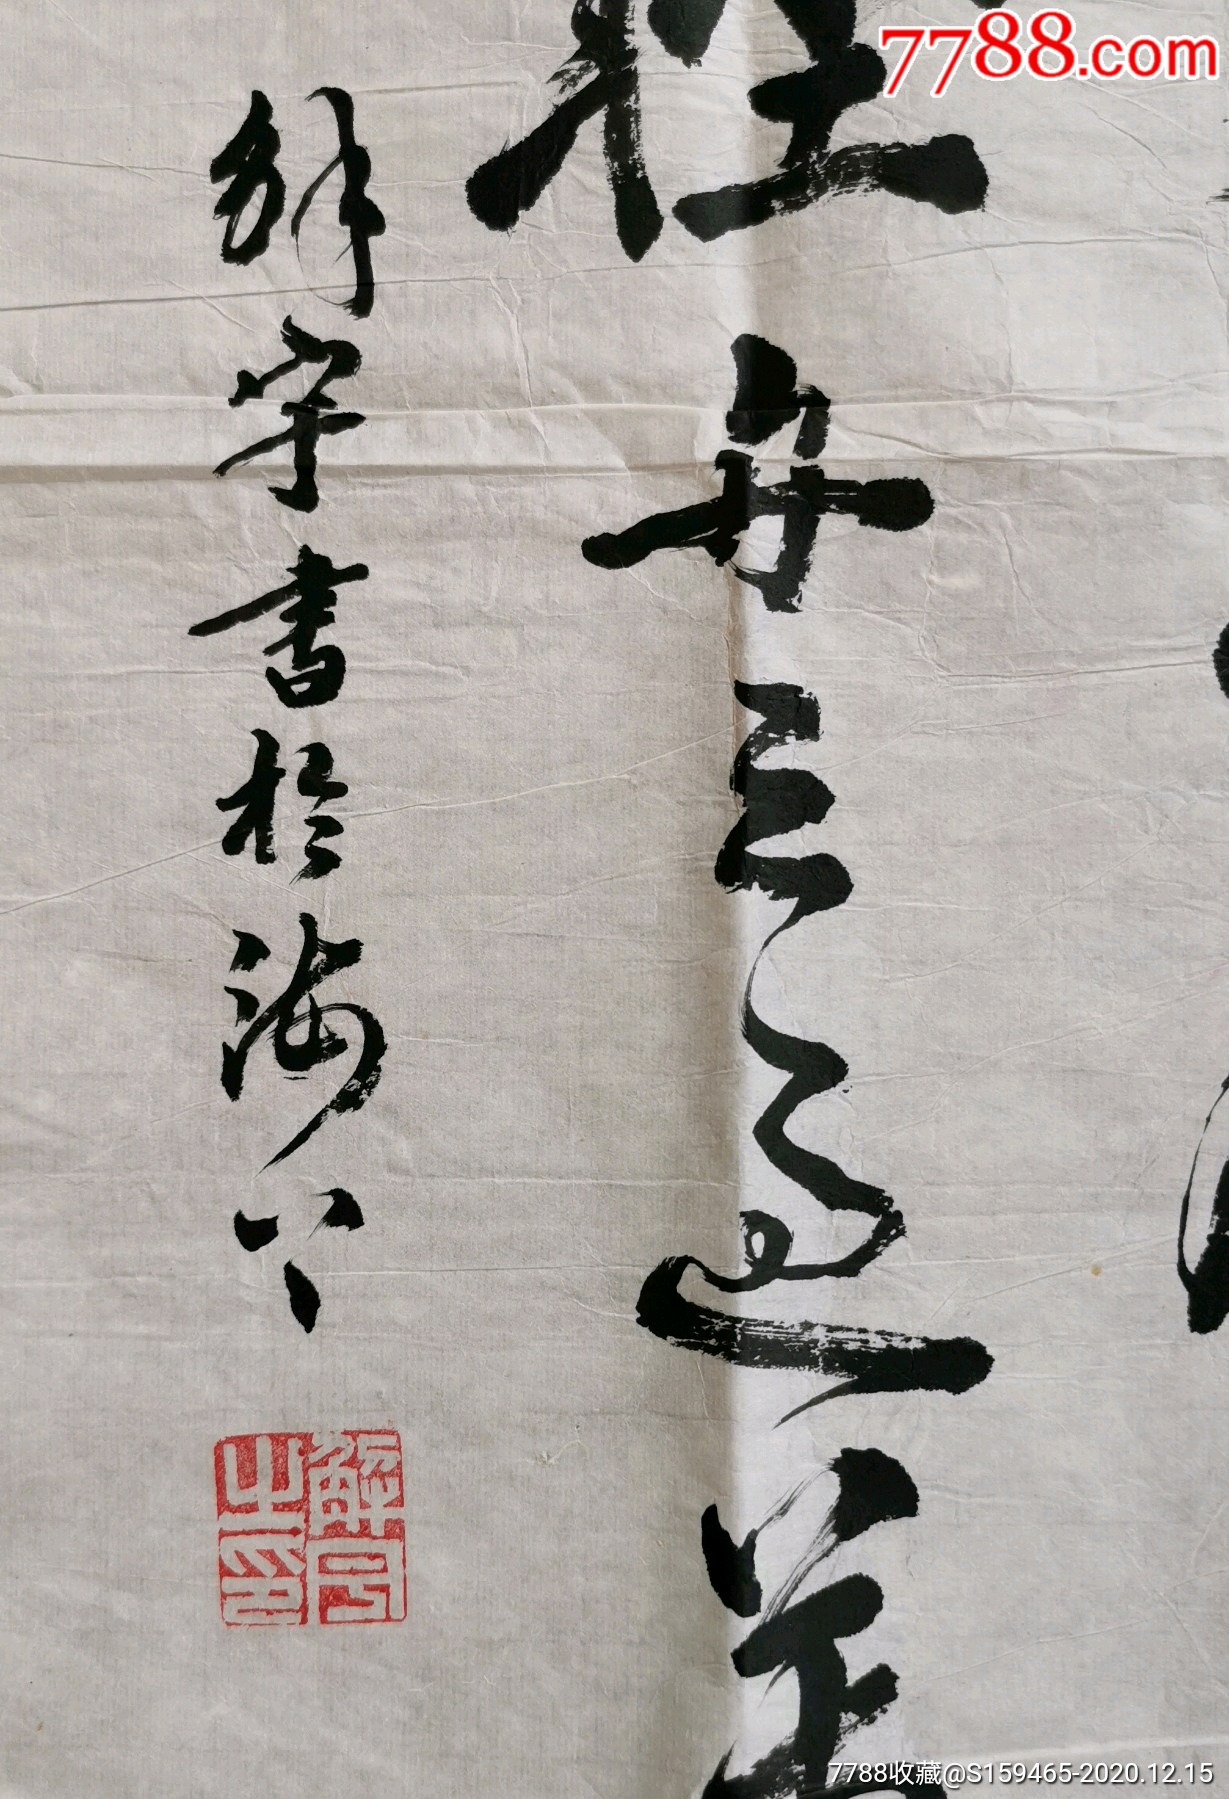 7788.com
輕舟已過萬
解宇書於海
解宇之印
7788收藏@S159465-2020.12.15